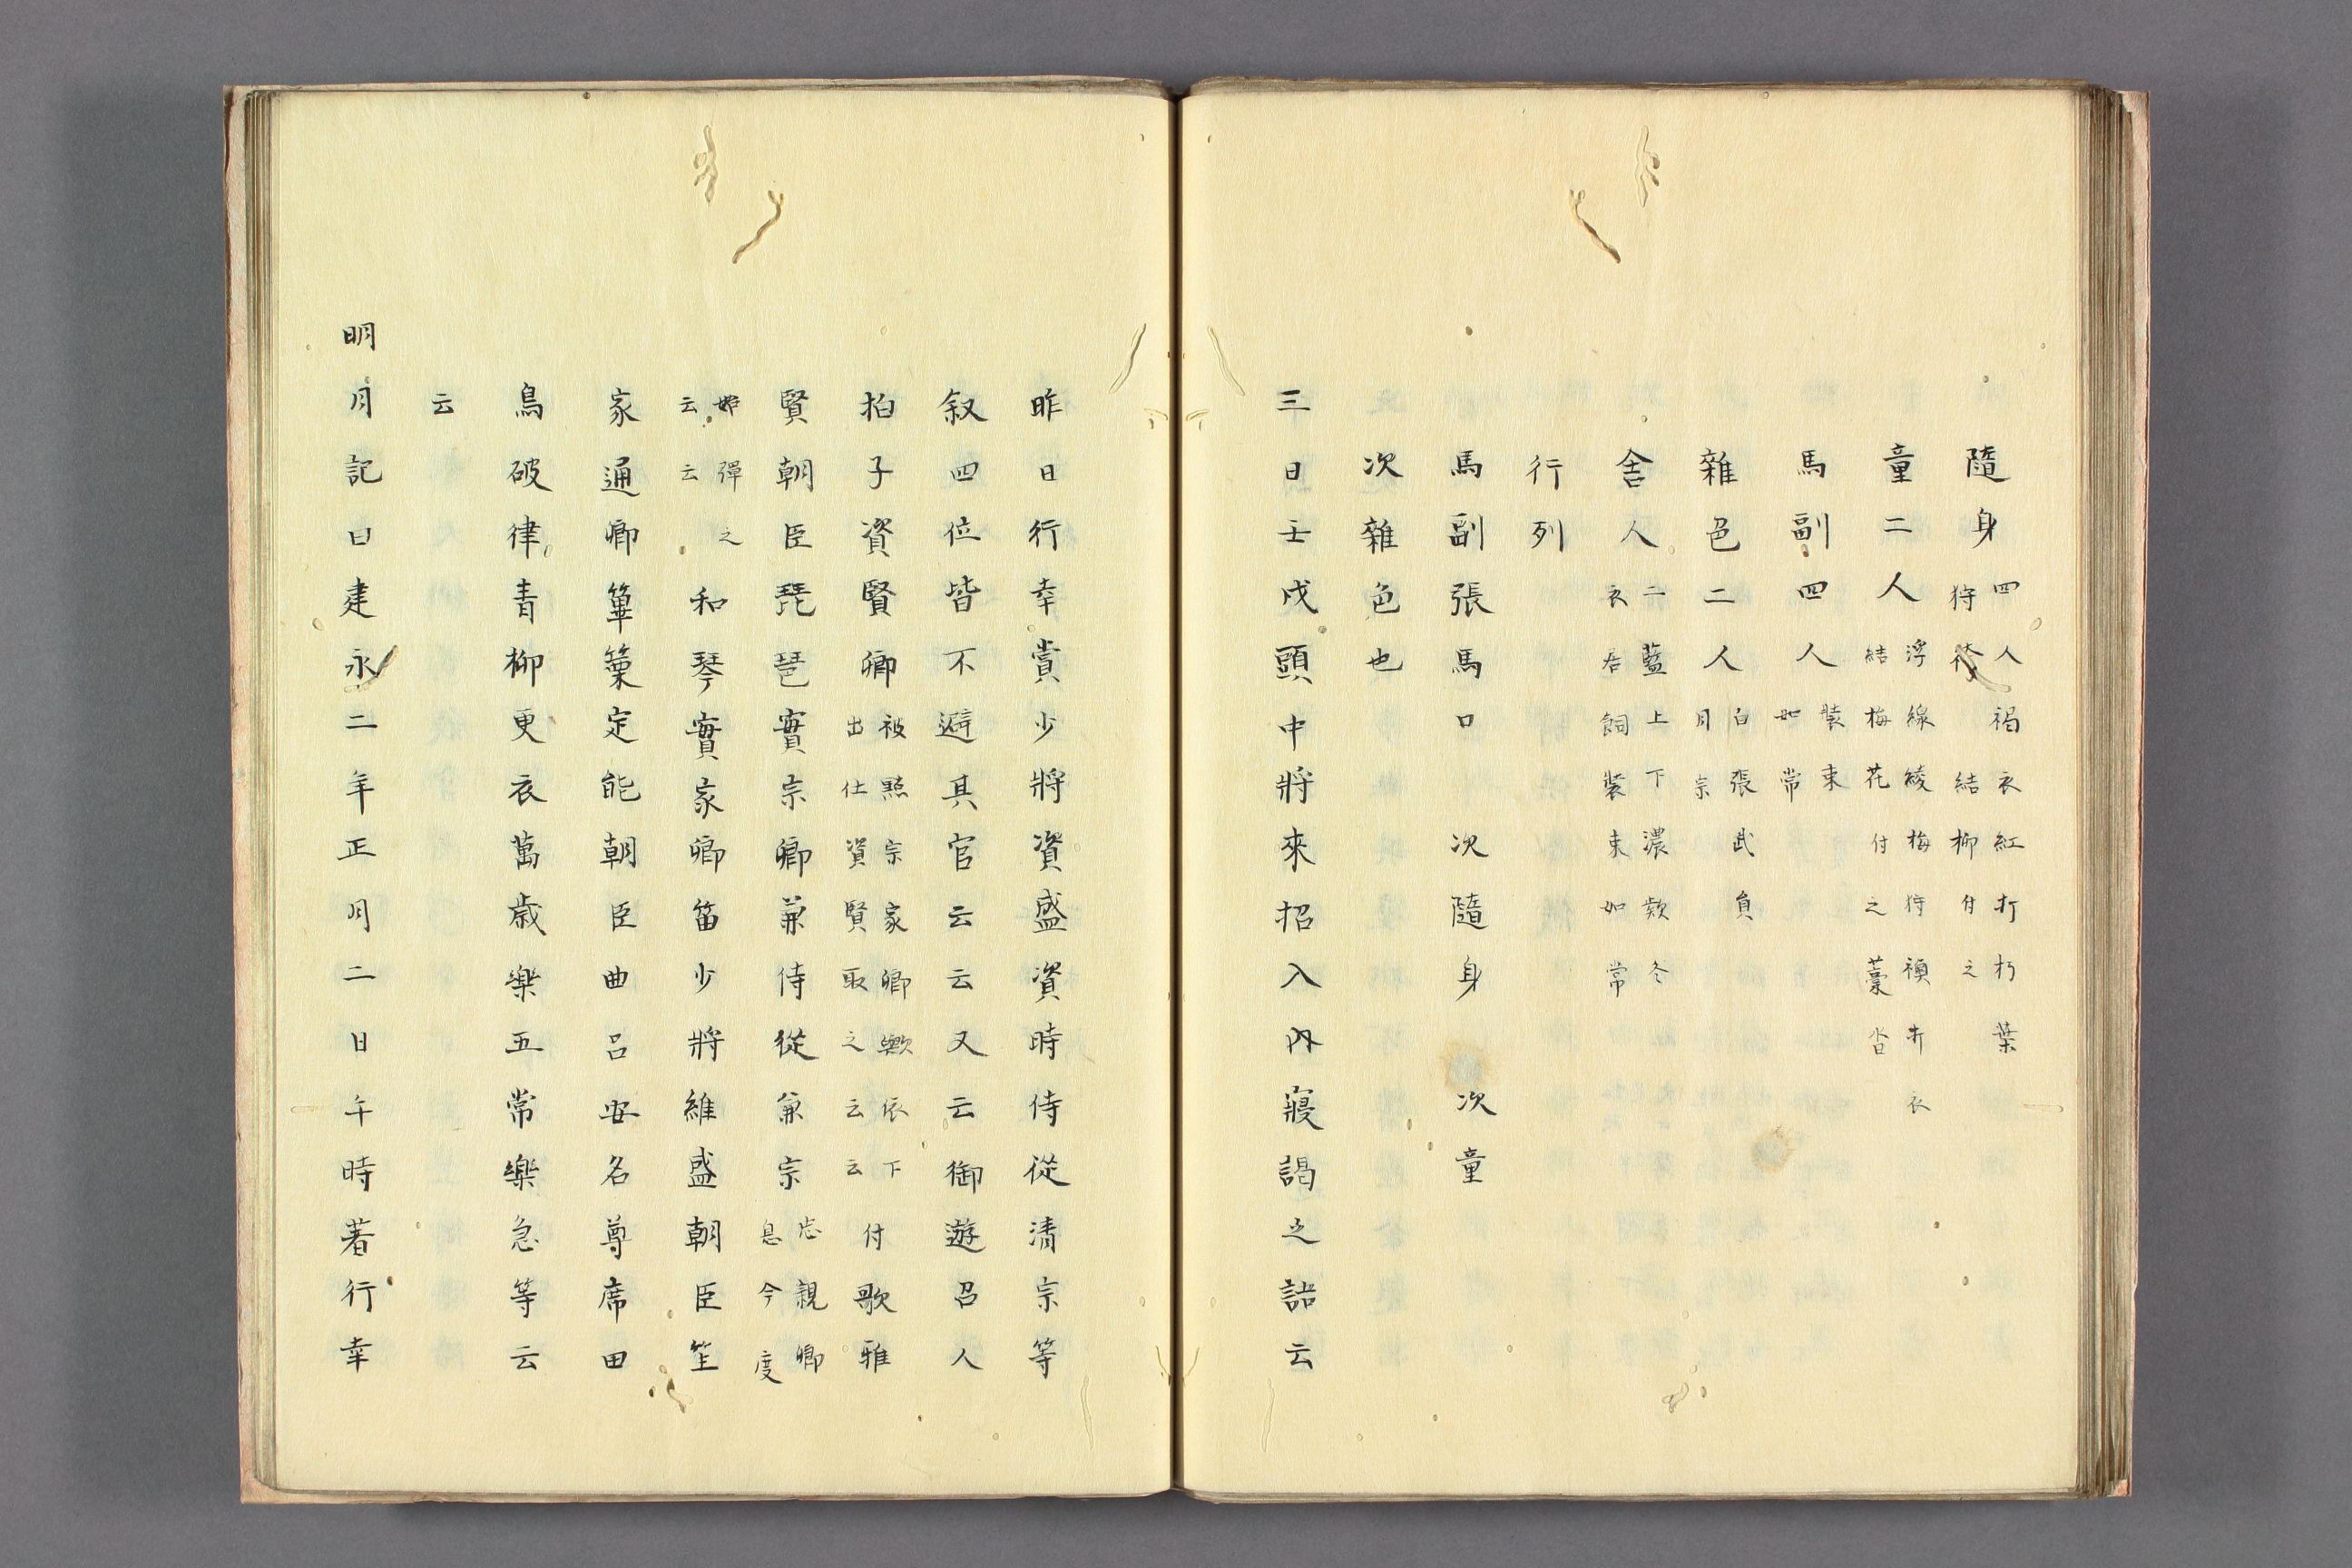 隨身四人褐衣紅打朽葉
狩袴結柳付之
童二人浮線綾梅狩襖朽衣
結梅花付之藁沓
馬副四人裝束
如常
雜色二人白張武負
月宗
舍人二藍上下濃款冬
衣居飼裝束如常
行列
馬副張馬口 次隨身 次童
次雜色也
三日壬戌頭中將來招入内寢謁之語云
昨日行幸賞少將資盛資時侍從清宗等
叙四位皆不避其官云云又云御遊召人
拍子資賢卿被點宗家卿歟依下
出仕資賢取之云云付歌雅
賢朝臣琵琶實宗卿兼侍從兼宗忠親卿
息今度
始彈之
云云和琴實家卿笛少將維盛朝臣笙
家通卿篳篥定能朝臣曲呂安名尊席田
鳥破律青柳更衣萬歳樂五常樂急等云
云
明月記曰建永二年正月二日午時著行幸